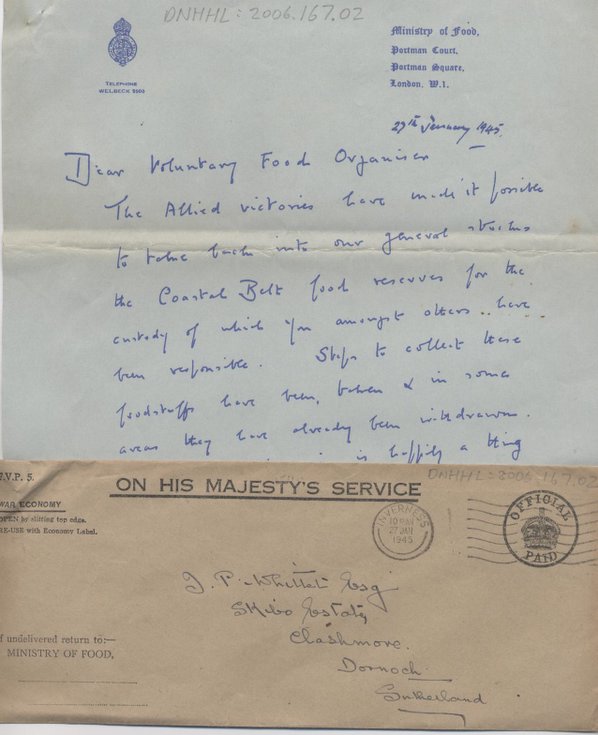 DNHHL: 2006.167.02
TELEPHONE
WELBECK 5500
Ministry of Food,
Portman Court,
Portman Square,
London, W.1.
27th January 1945.
Dear Voluntary Food Organiser
The Allied victories have made it possible
to take back into our general stocks
the Coastal Belt food reserves for the
custody of which you amongst others have
been responsible. Steps to collect these
foodstuffs have been taken & in some
areas they have already been withdrawn.
is happily a thing
F.V.P. 5.
WAR ECONOMY
OPEN by slitting top edge.
RE-USE with Economy Label.
ON HIS MAJESTY'S SERVICE
DNHHL: 2006.167.02
INVERNESS
27 JAN
1945
OFFICIAL
PAID
J. P. Whittet Esq
Skibo Estate,
Clashmore.
Dornoch
Sutherland
f undelivered return to:—
MINISTRY OF FOOD,